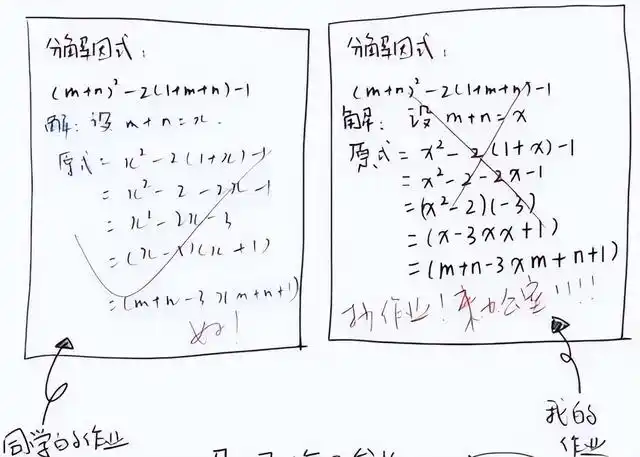 分解因式：
(m+n)²-2(1+m+n)-1
解：设 m+n=x.
原式=x²-2(1+x)-1
=x²-2-2x-1
=x²-2x-3
=(x-3)(x+1)
=(m+n-3)(m+n+1)
好！
同学的作业
分解因式：
(m+n)²-2(1+m+n)-1
解：设 m+n=x
原式=x²-2(1+x)-1
=x²-2-2x-1
=(x²-2)(-3)
=(x-3)(x+1)
=(m+n-3)(m+n+1)
抄作业！来办公室！！！！
我的
作业